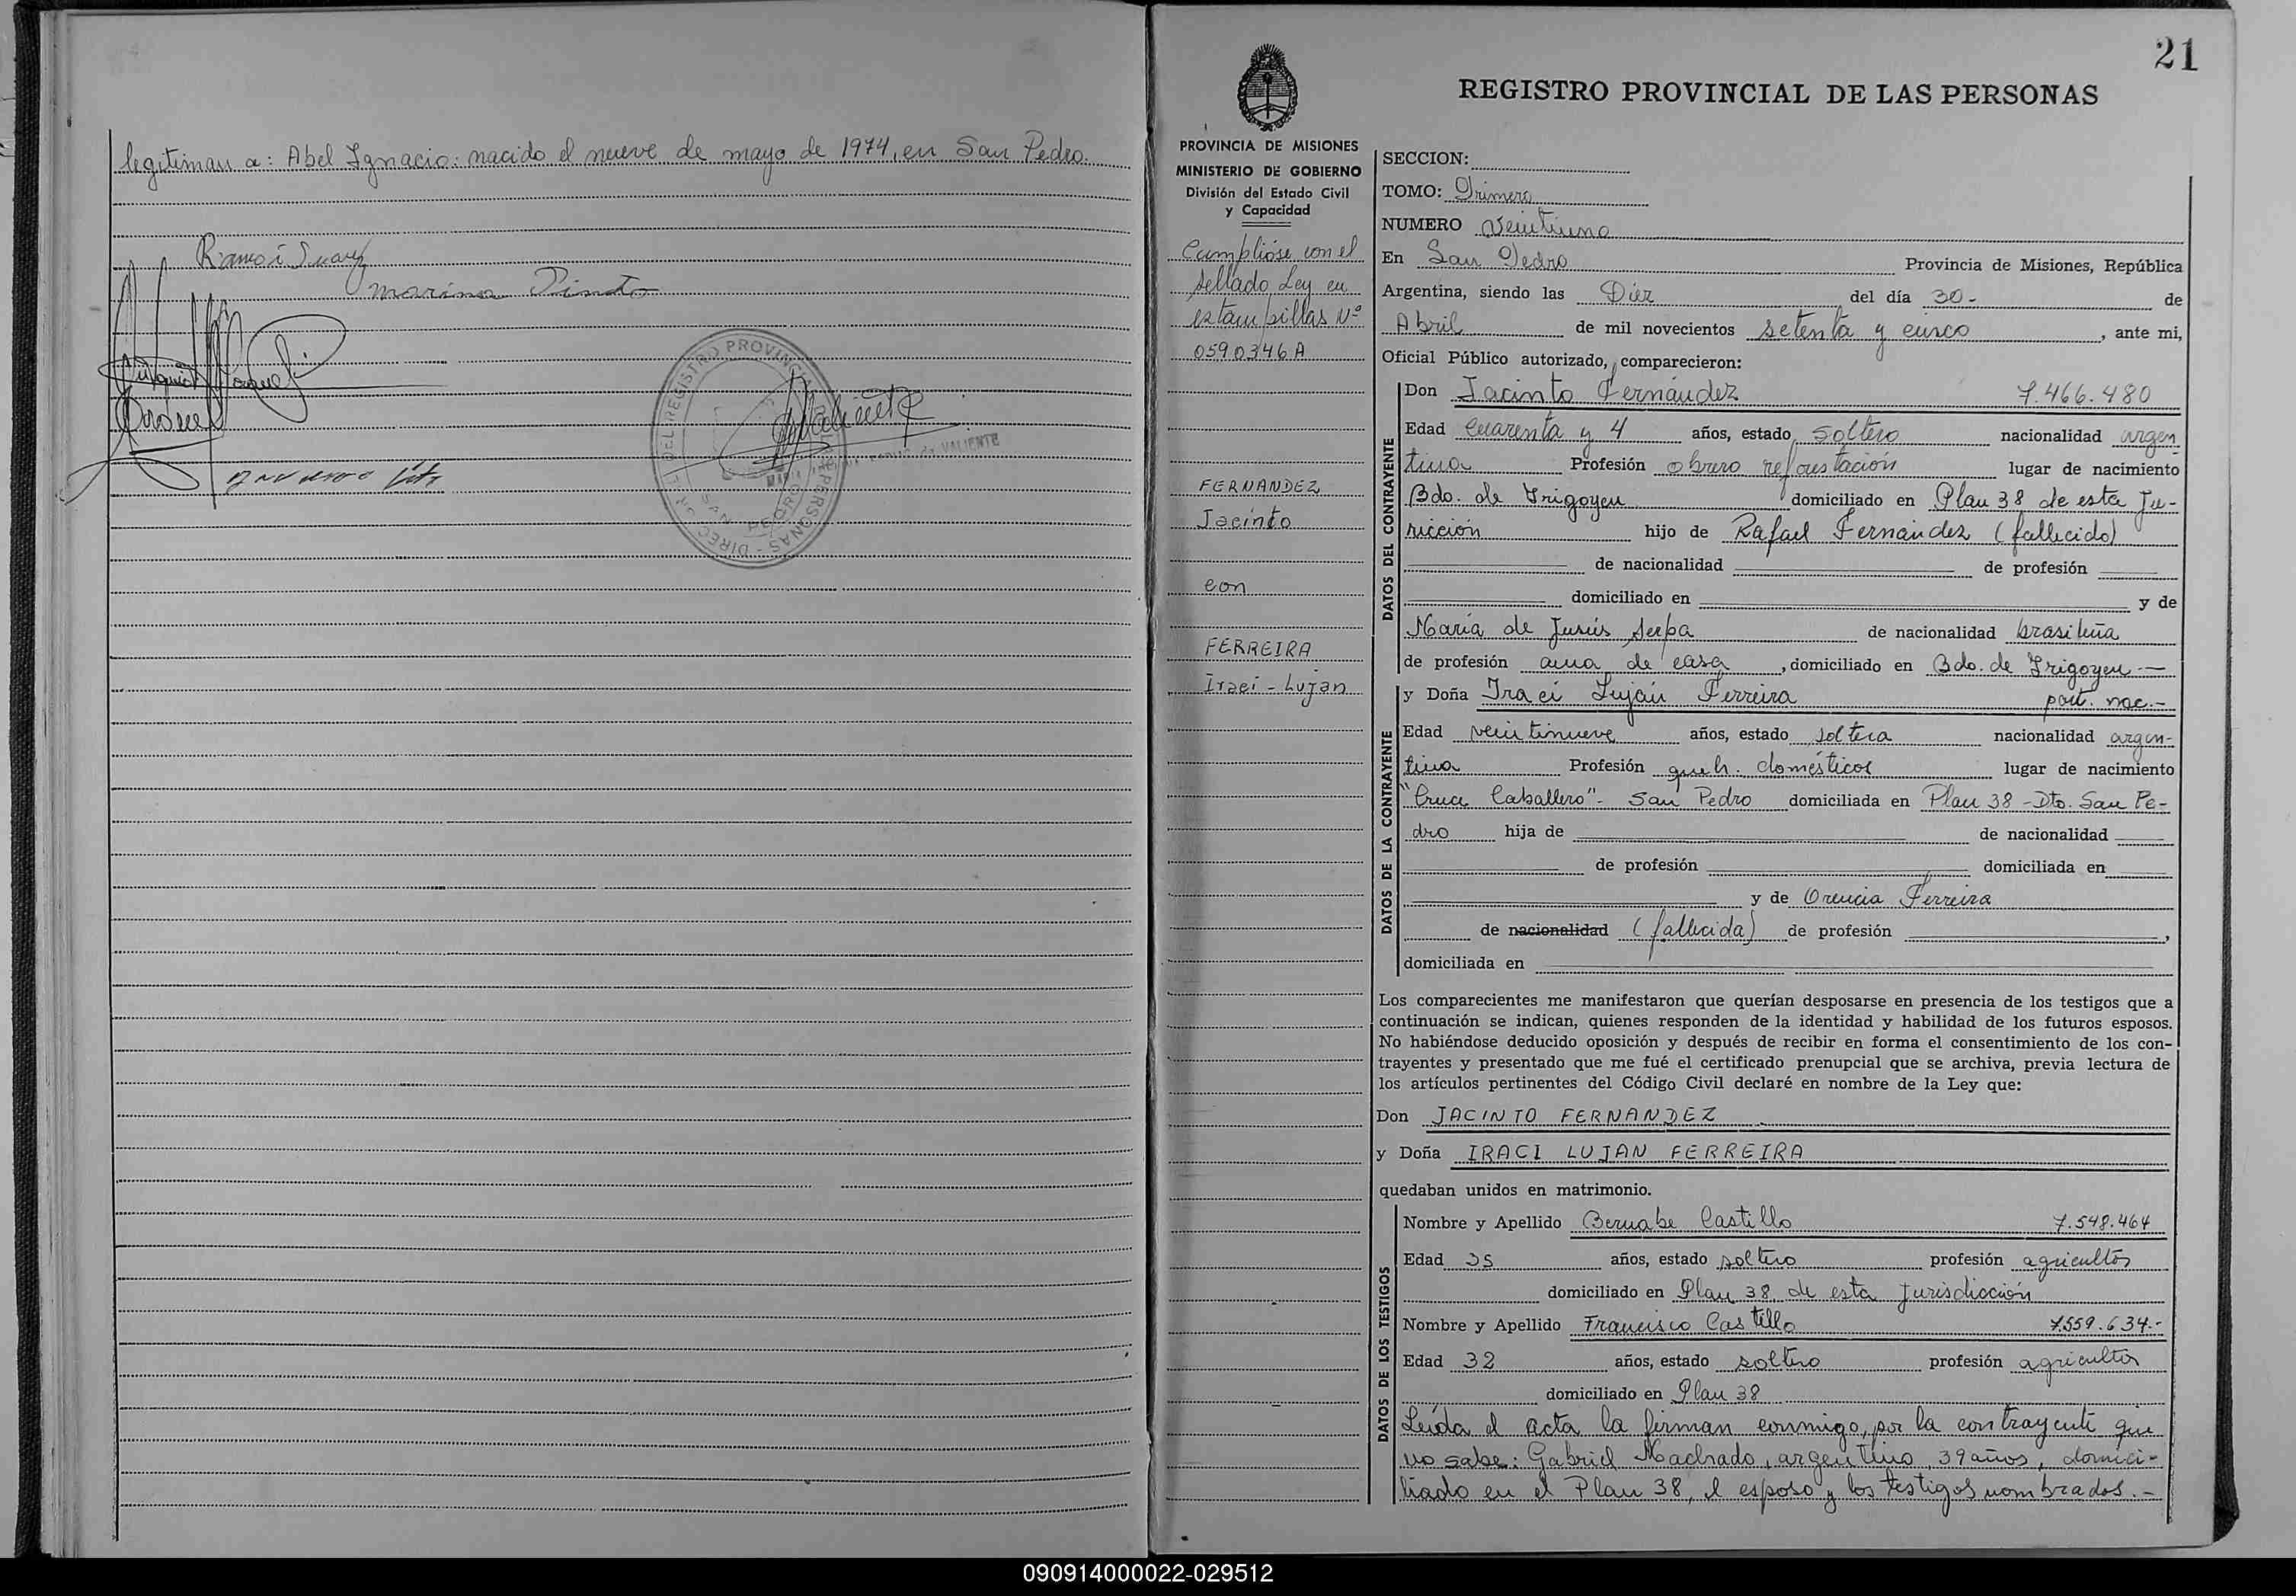 legitiman a: Abel Ignacio: nacido el nueve de mayo de 1974, en San Pedro.
Marina Pinto
DIREC
DEL REGISTRO PROVINCIAL
PERSONAS
SAN PEDRO
de VALIENTE
21
REGISTRO PROVINCIAL DE LAS PERSONAS
PROVINCIA DE MISIONES
MINISTERIO DE GOBIERNO
División del Estado Civil
y Capacidad
Cumplióse con el
sellado Ley en
estampillas Nº
0590346A
FERNANDEZ
Jacinto
con
FERREIRA
Iraci - Lujan
SECCION:
TOMO: Primero
NUMERO Veintiuno
En San Pedro Provincia de Misiones, República
Argentina, siendo las Diez del día 30- de
Abril de mil novecientos setenta y cinco, ante mi,
Oficial Público autorizado, comparecieron:
DATOS DEL CONTRAYENTE
Don Jacinto Fernández 7.466.480
Edad Cuarenta y 4 años, estado soltero nacionalidad argen-
tina Profesión obrero reforestación lugar de nacimiento
Bdo. de Irigoyen domiciliado en Plan 38 de esta Ju-
ricción hijo de Rafael Fernández (fallecido)
de nacionalidad de profesión
domiciliado en y de
María de Jesús Serpa de nacionalidad brasileña
de profesión ama de casa, domiciliado en Bdo. de Irigoyen —
DATOS DE LA CONTRAYENTE
y Doña Iraci Luján Ferreira part. nac.-
Edad veintinueve años, estado soltera nacionalidad argen-
tina Profesión queh. domésticos lugar de nacimiento
"Cruce Caballero"- San Pedro domiciliada en Plan 38 - Dto. San Pe-
dro hija de de nacionalidad
de profesión domiciliada en
y de Orencia Ferreira
de nacionalidad (fallecida) de profesión ,
domiciliada en
Los comparecientes me manifestaron que querían desposarse en presencia de los testigos que a
continuación se indican, quienes responden de la identidad y habilidad de los futuros esposos.
No habiéndose deducido oposición y después de recibir en forma el consentimiento de los con-
trayentes y presentado que me fué el certificado prenupcial que se archiva, previa lectura de
los artículos pertinentes del Código Civil declaré en nombre de la Ley que:
Don JACINTO FERNANDEZ
y Doña IRACI LUJAN FERREIRA
quedaban unidos en matrimonio.
DATOS DE LOS TESTIGOS
Nombre y Apellido Bernabe Castillo 7.548.464
Edad 35 años, estado soltero profesión agricultor
domiciliado en Plan 38 de esta Jurisdicción
Nombre y Apellido Francisco Castillo 7.559.634.-
Edad 32 años, estado soltero profesión agricultor
domiciliado en Plan 38
Leída el acta la firman conmigo, por la contrayente que
no sabe: Gabriel Machado, argentino, 39 años, domici-
liado en el Plan 38, el esposo y los testigos nombrados.-
090914000022-029512